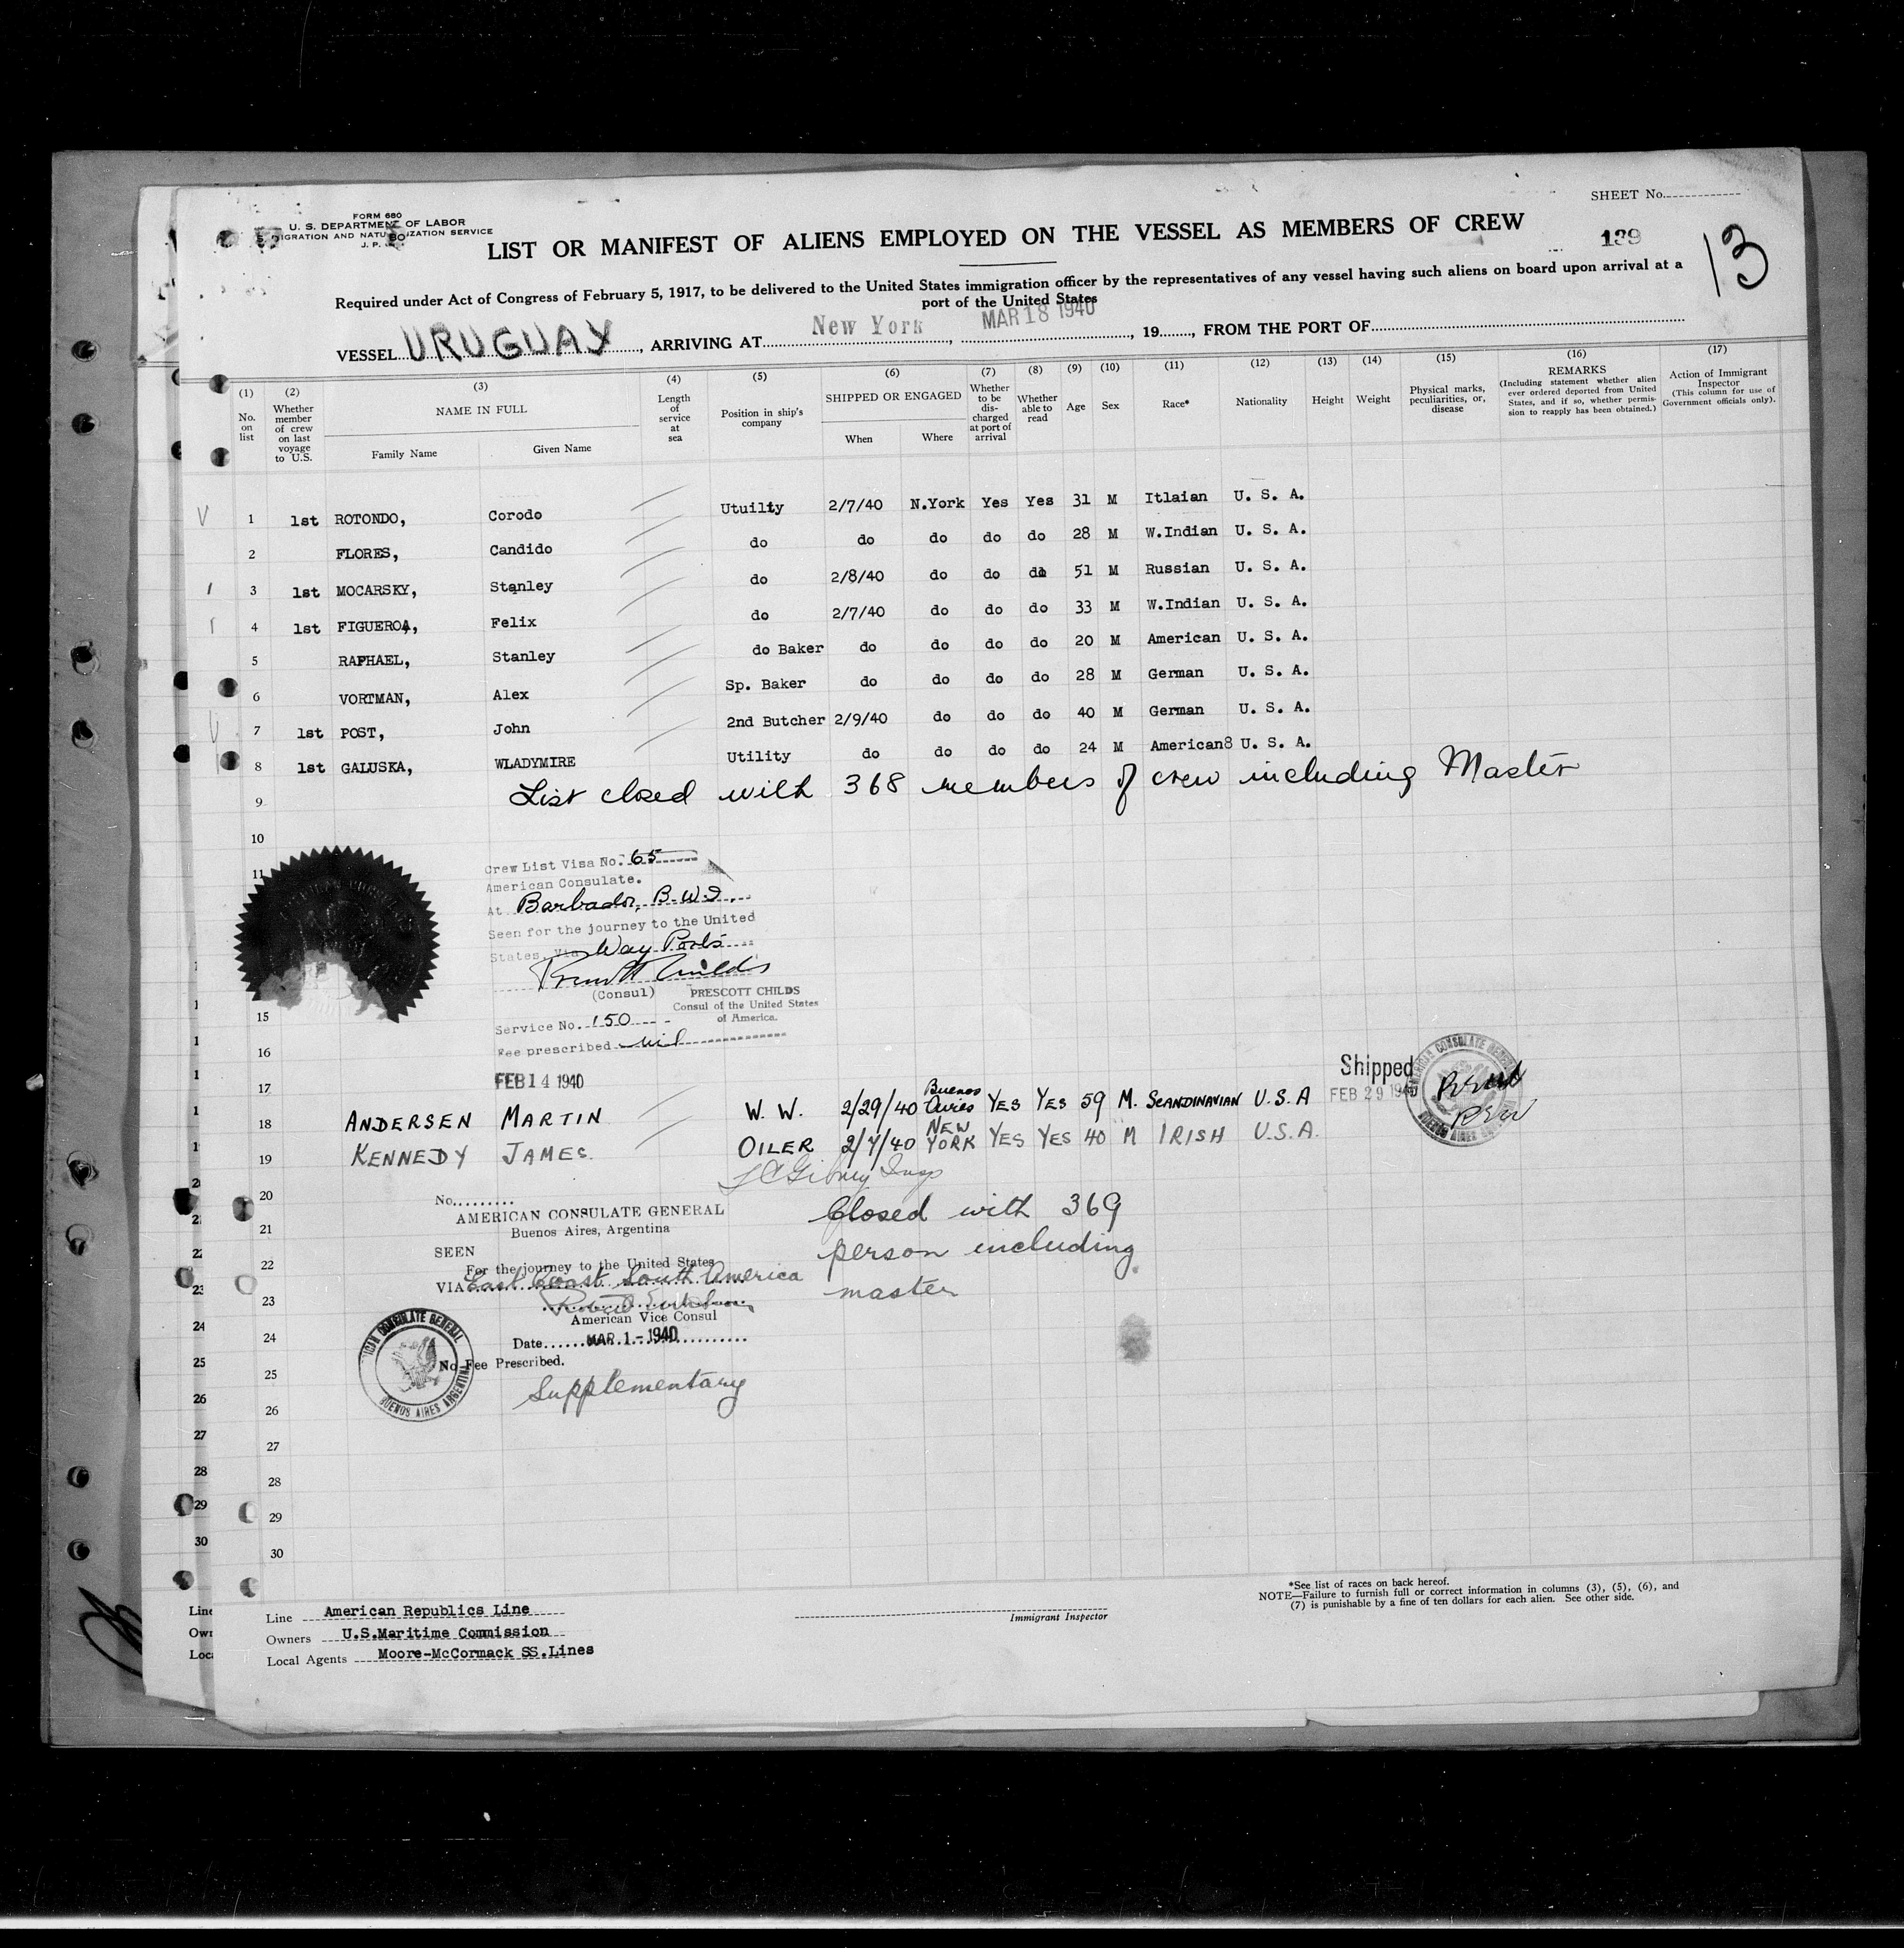 SHEET No.
FORM 680
U. S. DEPARTMENT OF LABOR
IGRATION AND NATU IZATION SERVICE
J. P.
LIST OR MANIFEST OF ALIENS EMPLOYED ON THE VESSEL AS MEMBERS OF CREW
139
13
Required under Act of Congress of February 5, 1917, to be delivered to the United States immigration officer by the representatives of any vessel having such aliens on board upon arrival at a
port of the United States
VESSEL URUGUAY, ARRIVING AT New York, MAR 18 1940, 19......, FROM THE PORT OF
(1) (2) (3) (4) (5) (6) (7) (8) (9) (10) (11) (12) (13) (14) (15) (16) (17)
No. on list
Whether member of crew on last voyage to U.S.
NAME IN FULL
Family Name Given Name
Length of service at sea
Position in ship's company
SHIPPED OR ENGAGED
When Where
Whether to be discharged at port of arrival
Whether able to read
Age
Sex
Race*
Nationality
Height
Weight
Physical marks, peculiarities, or, disease
REMARKS
(Including statement whether alien ever ordered deported from United States, and if so, whether permission to reapply has been obtained.)
Action of Immigrant Inspector
(This column for use of Government officials only).
1 1st ROTONDO, Corodo Utuilty 2/7/40 N.York Yes Yes 31 M Itlaian U. S. A.
2 FLORES, Candido do do do do do 28 M W.Indian U. S. A.
3 1st MOCARSKY, Stanley do 2/8/40 do do do 51 M Russian U. S. A.
4 1st FIGUEROA, Felix do 2/7/40 do do do 33 M W.Indian U. S. A.
5 RAPHAEL, Stanley do Baker do do do do 20 M American U. S. A.
6 VORTMAN, Alex Sp. Baker do do do do 28 M German U. S. A.
7 1st POST, John 2nd Butcher 2/9/40 do do do 40 M German U. S. A.
8 1st GALUSKA, WLADYMIRE Utility do do do do 24 M American8 U. S. A.
9 List closed with 368 members of crew including Master
10
11
Crew List Visa No. 65
American Consulate.
At Barbados, B.W.I.
Seen for the journey to the United
States, via Way Ports
(Consul) PRESCOTT CHILDS
Consul of the United States
of America.
15
Service No. 150
16
Fee prescribed nil
17
FEB 14 1940
Shipped
FEB 29 1940
AMERICAN CONSULATE GENERAL
BUENOS AIRES
18 ANDERSEN MARTIN W. W. 2/29/40 Buenos Aires YES YES 59 M. SCANDINAVIAN U.S.A
19 KENNEDY JAMES. OILER 2/7/40 NEW YORK YES YES 40 M IRISH U.S.A.
20
No.........
AMERICAN CONSULATE GENERAL
Closed with 369
21
Buenos Aires, Argentina
SEEN
person including
22
For the journey to the United States
VIA East Coast South America
master
23
American Vice Consul
24
Date MAR 1-1940
No Fee Prescribed.
AMERICAN CONSULATE GENERAL
BUENOS AIRES ARGENTINA
25
Supplementary
26
27
28
29
30
24
25
26
27
28
29
30
*See list of races on back hereof.
NOTE—Failure to furnish full or correct information in columns (3), (5), (6), and
(7) is punishable by a fine of ten dollars for each alien. See other side.
Immigrant Inspector
Line American Republics Line
Owners U.S.Maritime Commission
Local Agents Moore-McCormack SS.Lines